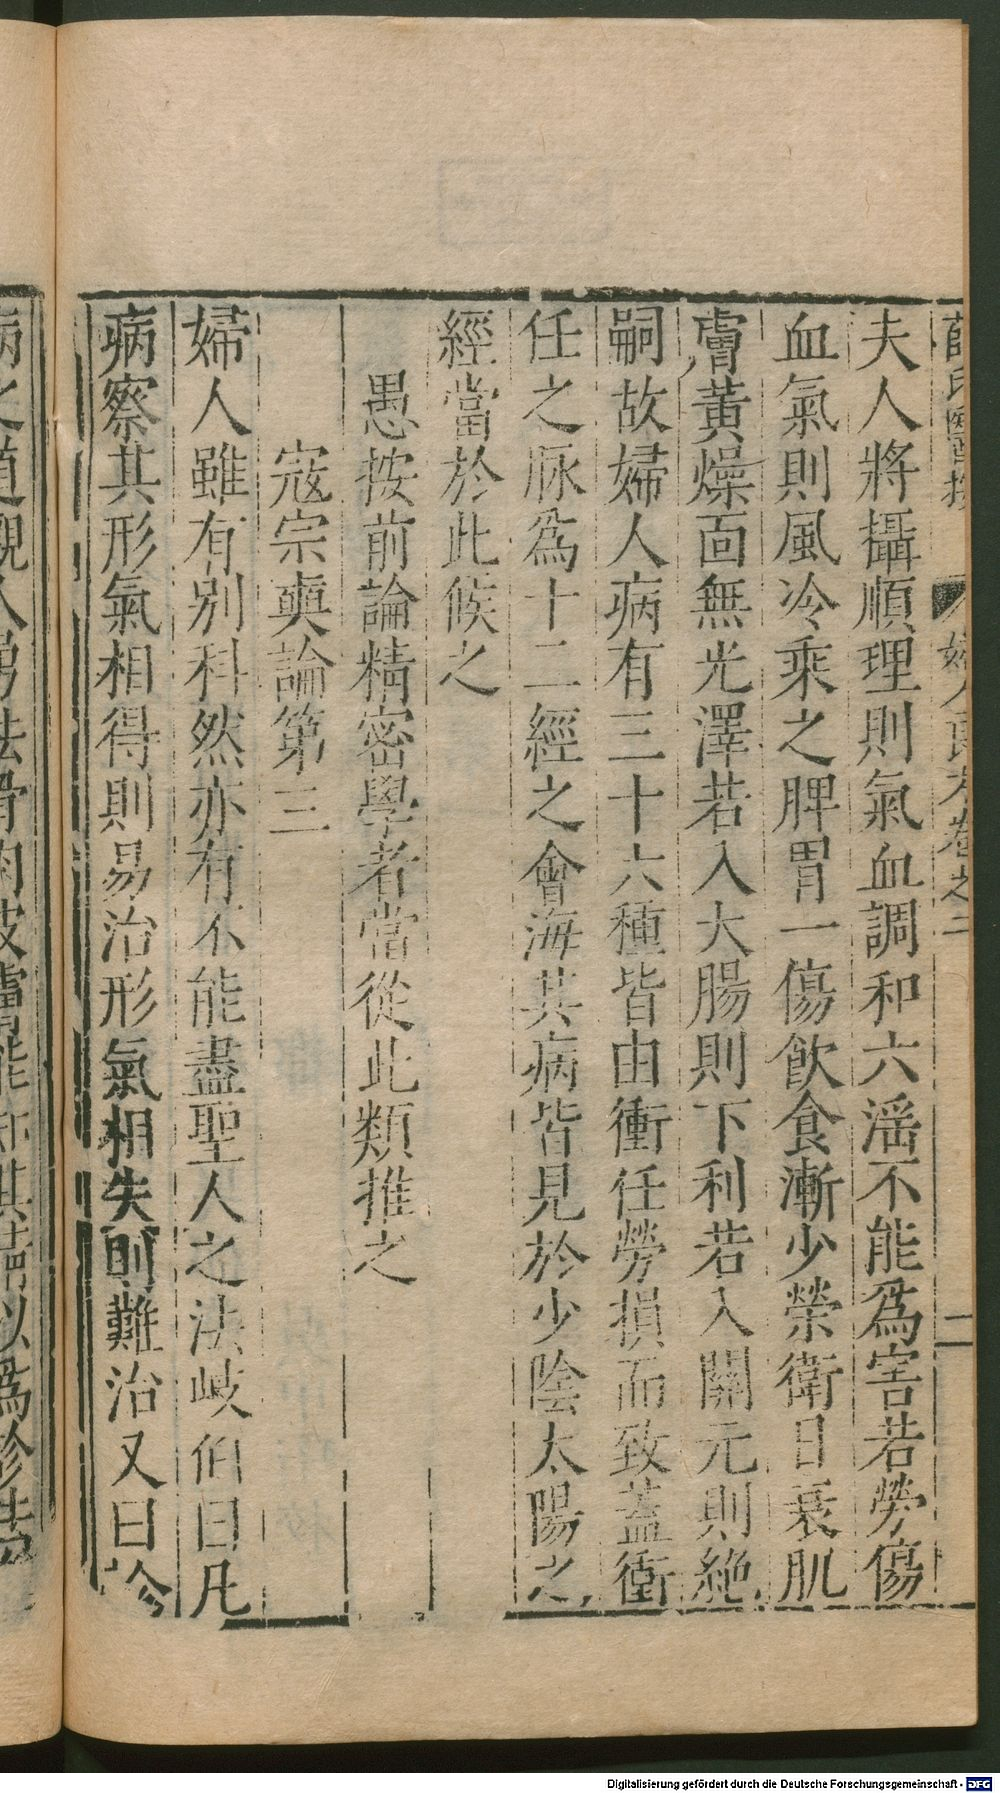 薛氏醫按 婦人良方卷之二 二
夫人將攝順理則氣血調和六滛不能爲害若勞傷
血氣則風冷乘之脾胃一傷飲食漸少榮衛日衰肌
膚黃燥面無光澤若入大腸則下利若入關元則絶
嗣故婦人病有三十六種皆由衝任勞損而致蓋衝
任之脉爲十二經之會海其病皆見於少陰太陽之
經當於此候之
愚按前論精密學者當從此類推之
寇宗奭論第三
婦人雖有别科然亦有不能盡聖人之法岐伯曰凡
病察其形氣相得則易治形氣相失則難治又曰診
病之道觀人勇怯骨肉皮膚能知其情以爲診法
Digitalisierung gefördert durch die Deutsche Forschungsgemeinschaft - DFG